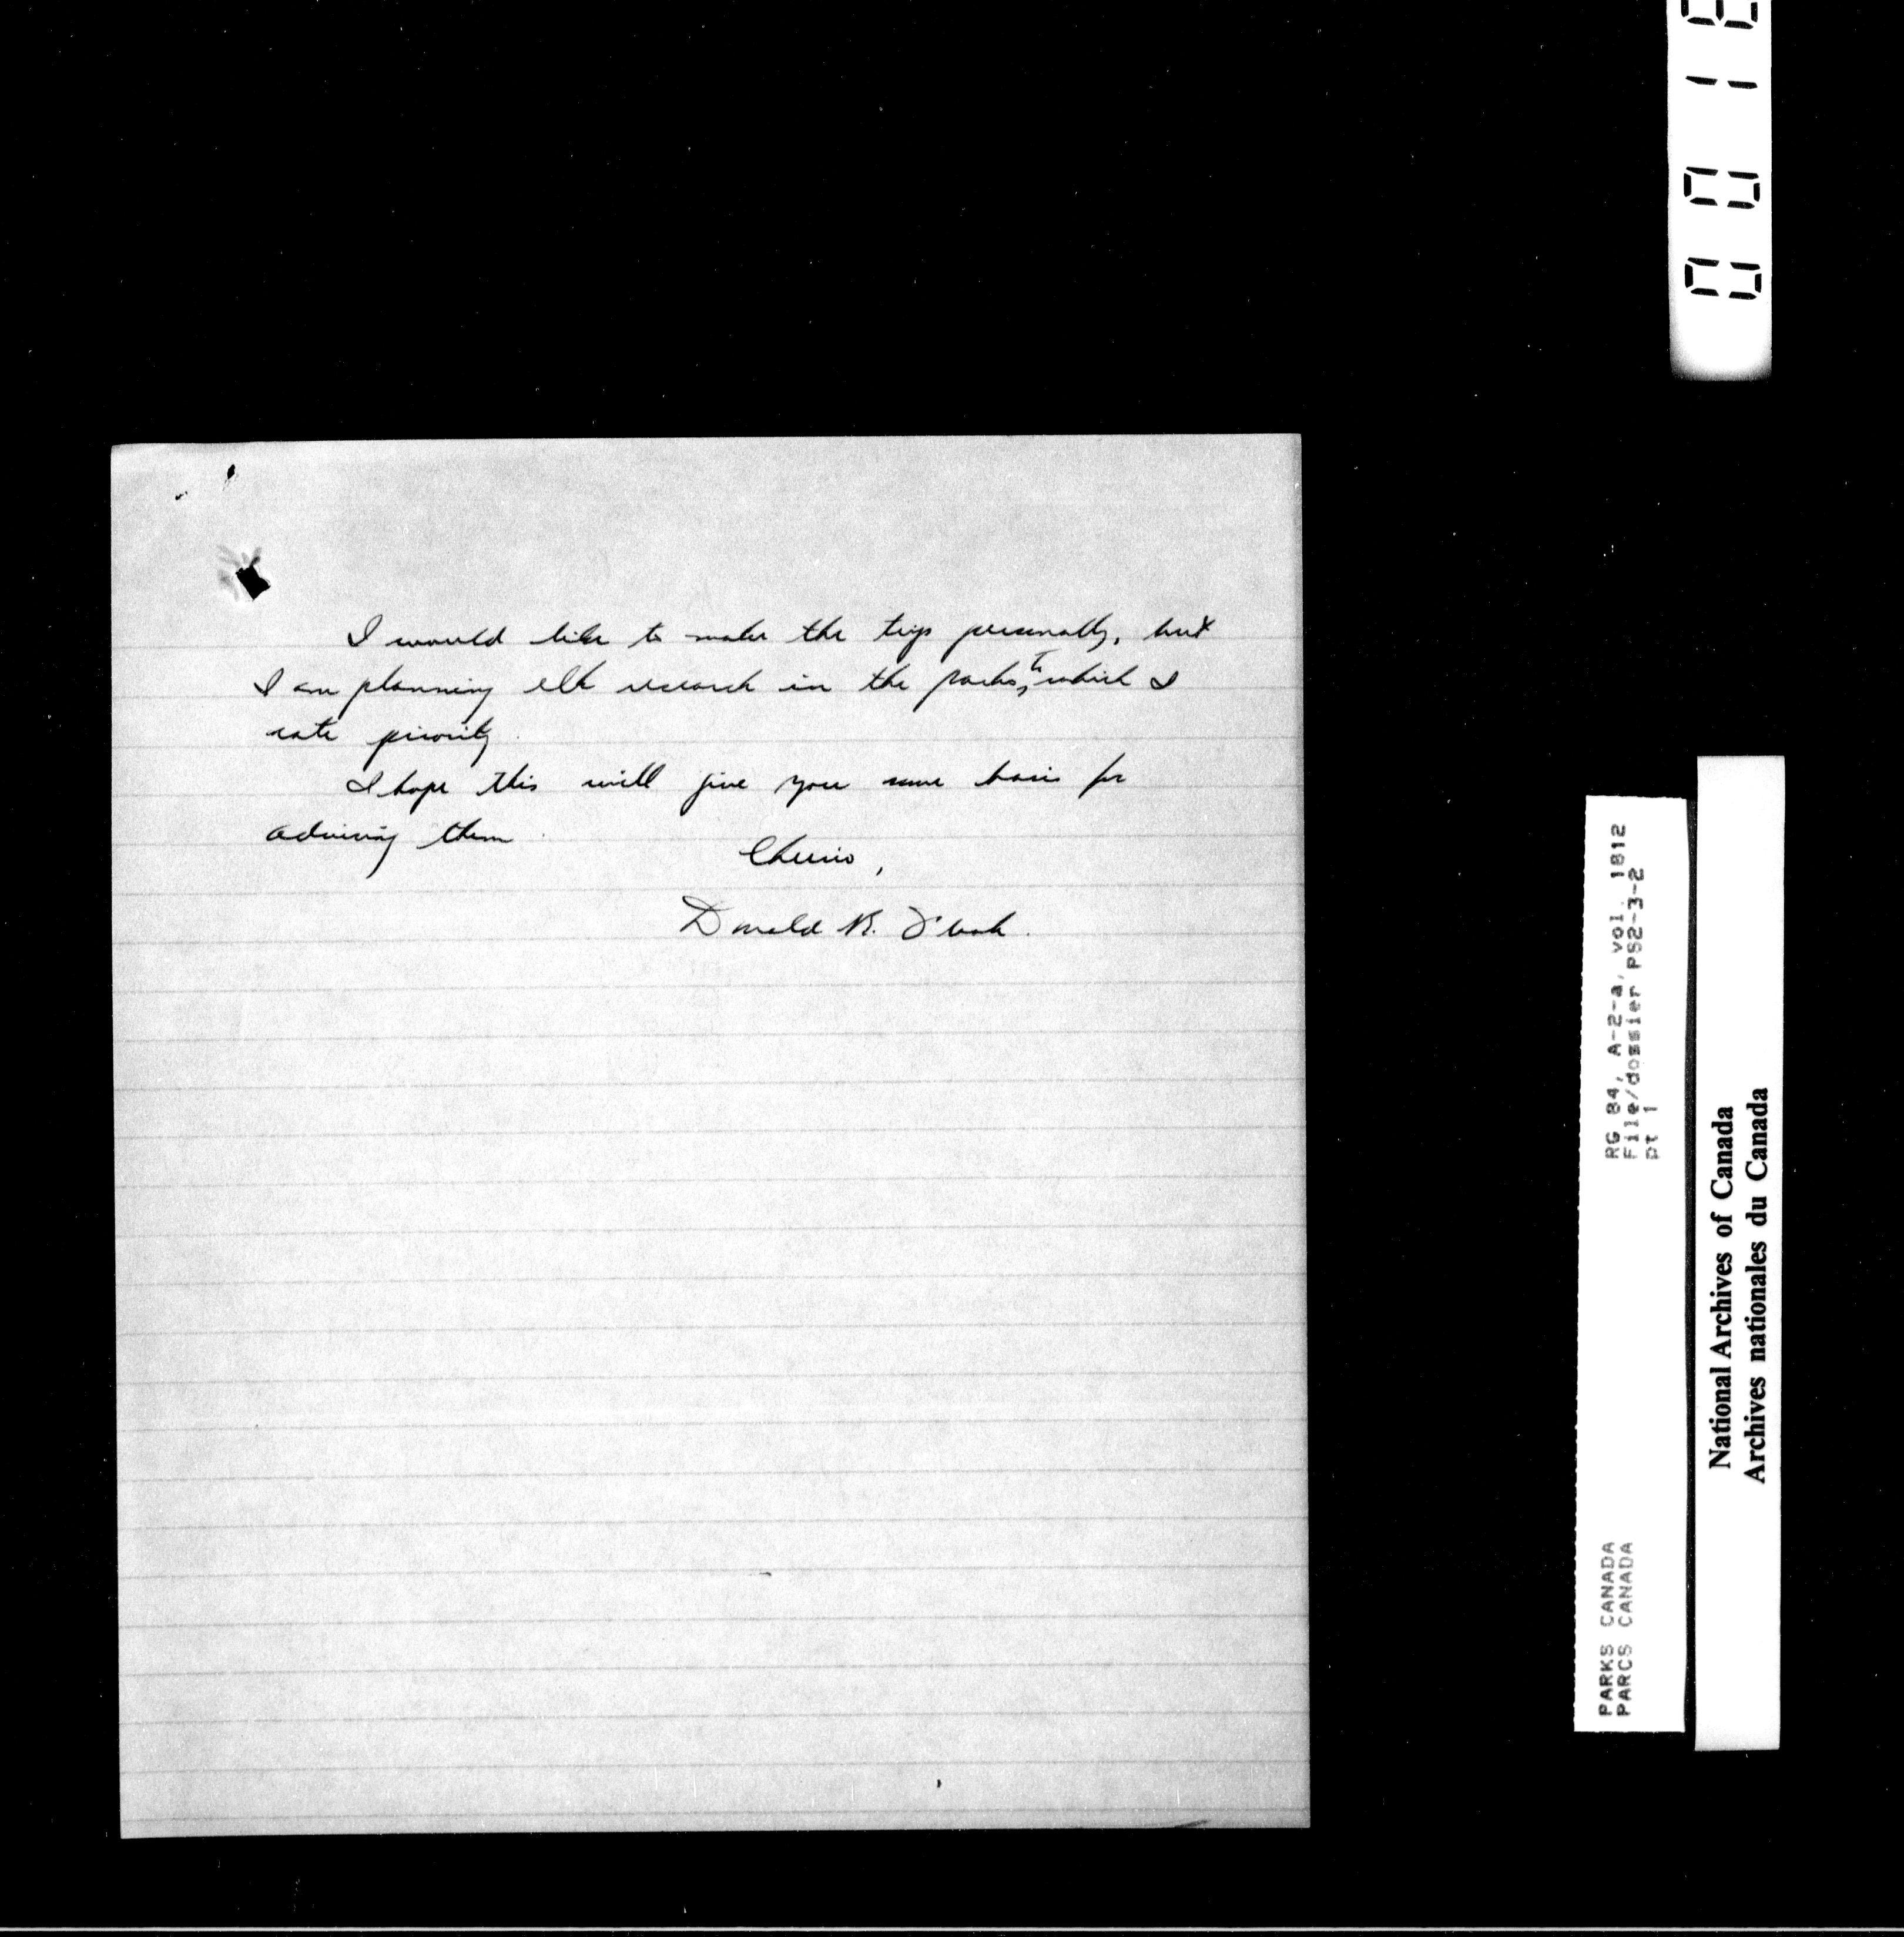 I would like to make the trip personally, but
I am planning elk research in the parks, to which I
rate priority.
I hope this will give you some basis for
advising them.
Cheerio,
Donald R. Flook.
RG 84, A-2-a, vol. 1812
File/dossier PS2-3-2
pt 1
PARKS CANADA
PARCS CANADA
National Archives of Canada
Archives nationales du Canada